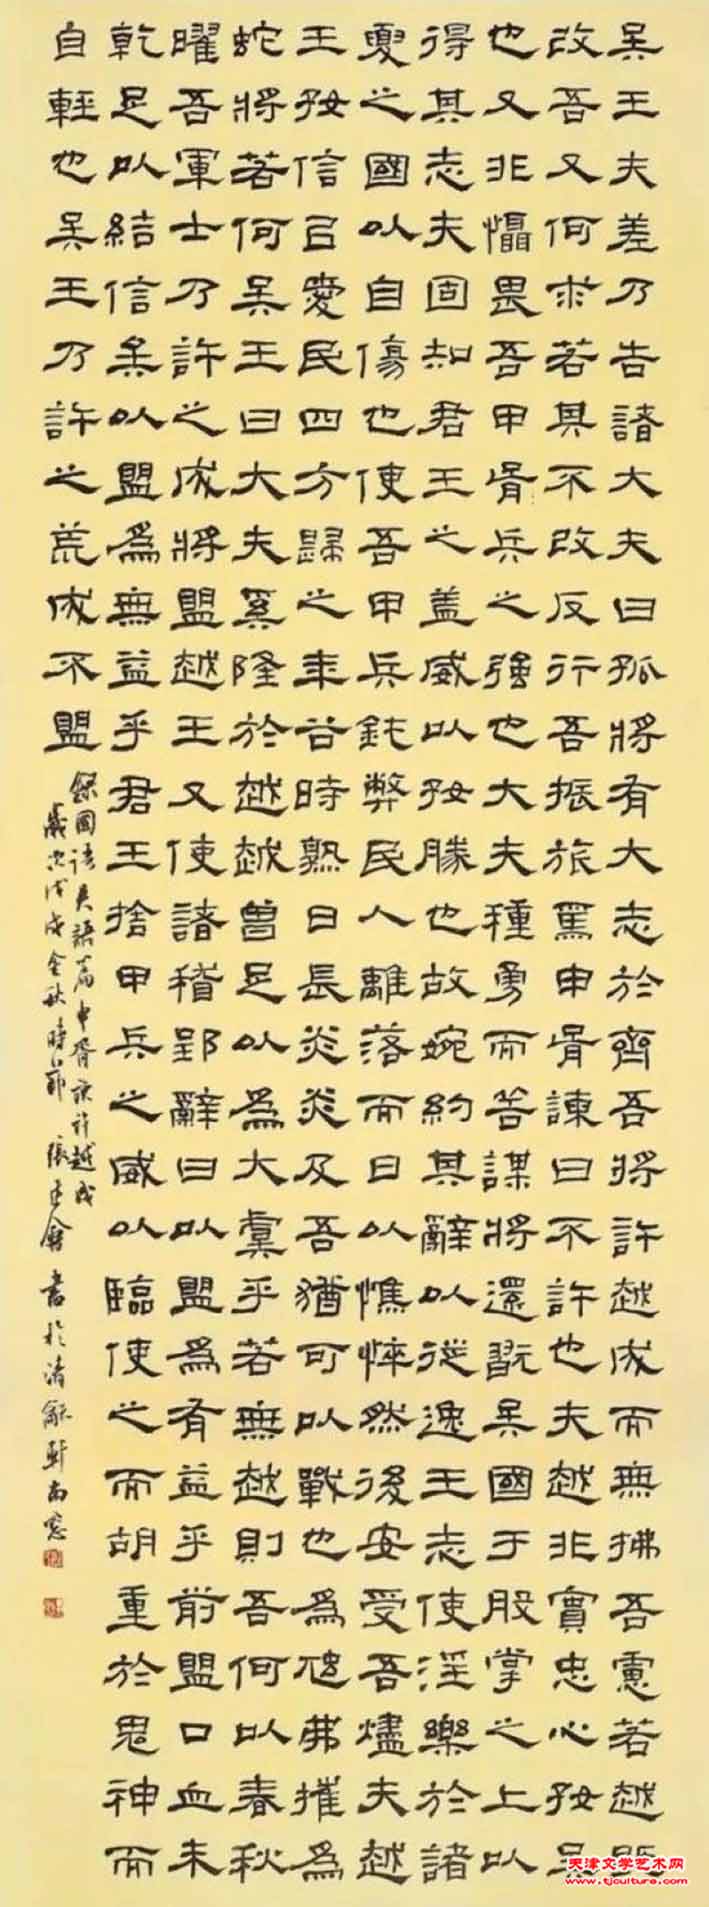 吴王夫差乃告諸大夫曰孤將有大志於齊吾將許越成而無拂吾慮若越既
改吾又何求若其不改反行吾振旅焉申胥諫曰不許也夫越非實忠心好吴
也又非懾畏吾甲胥兵之強也大夫種勇而善謀將還翫吴國于股掌之上以
得其志夫固知君王之盖威以好勝也故婉約其辭以從逸王志使淫樂於諸
夏之國以自傷也使吾甲兵鈍弊民人離落而日以憔悴然後安受吾燼夫越
王好信以愛民四方歸之年谷時熟日長炎炎及吾猶可以戰也為虺弗摧為
蛇將若何吴王曰大夫奚隆於越越曾足以為大虞乎若無越則吾何以春秋
曜吾軍士乃許之成將盟越王又使諸稽郢辭曰以盟為有益乎前盟口血未
乾足以結信矣以盟為無益乎君王捨甲兵之威以臨使之而胡重於鬼神而
自輕也吴王乃許之荒成不盟
錄國語吴語篇申胥諫許越成
歲次戊戌金秋時節張建會書於清龢軒南窗
天津文学艺术网
www.tjculture.com